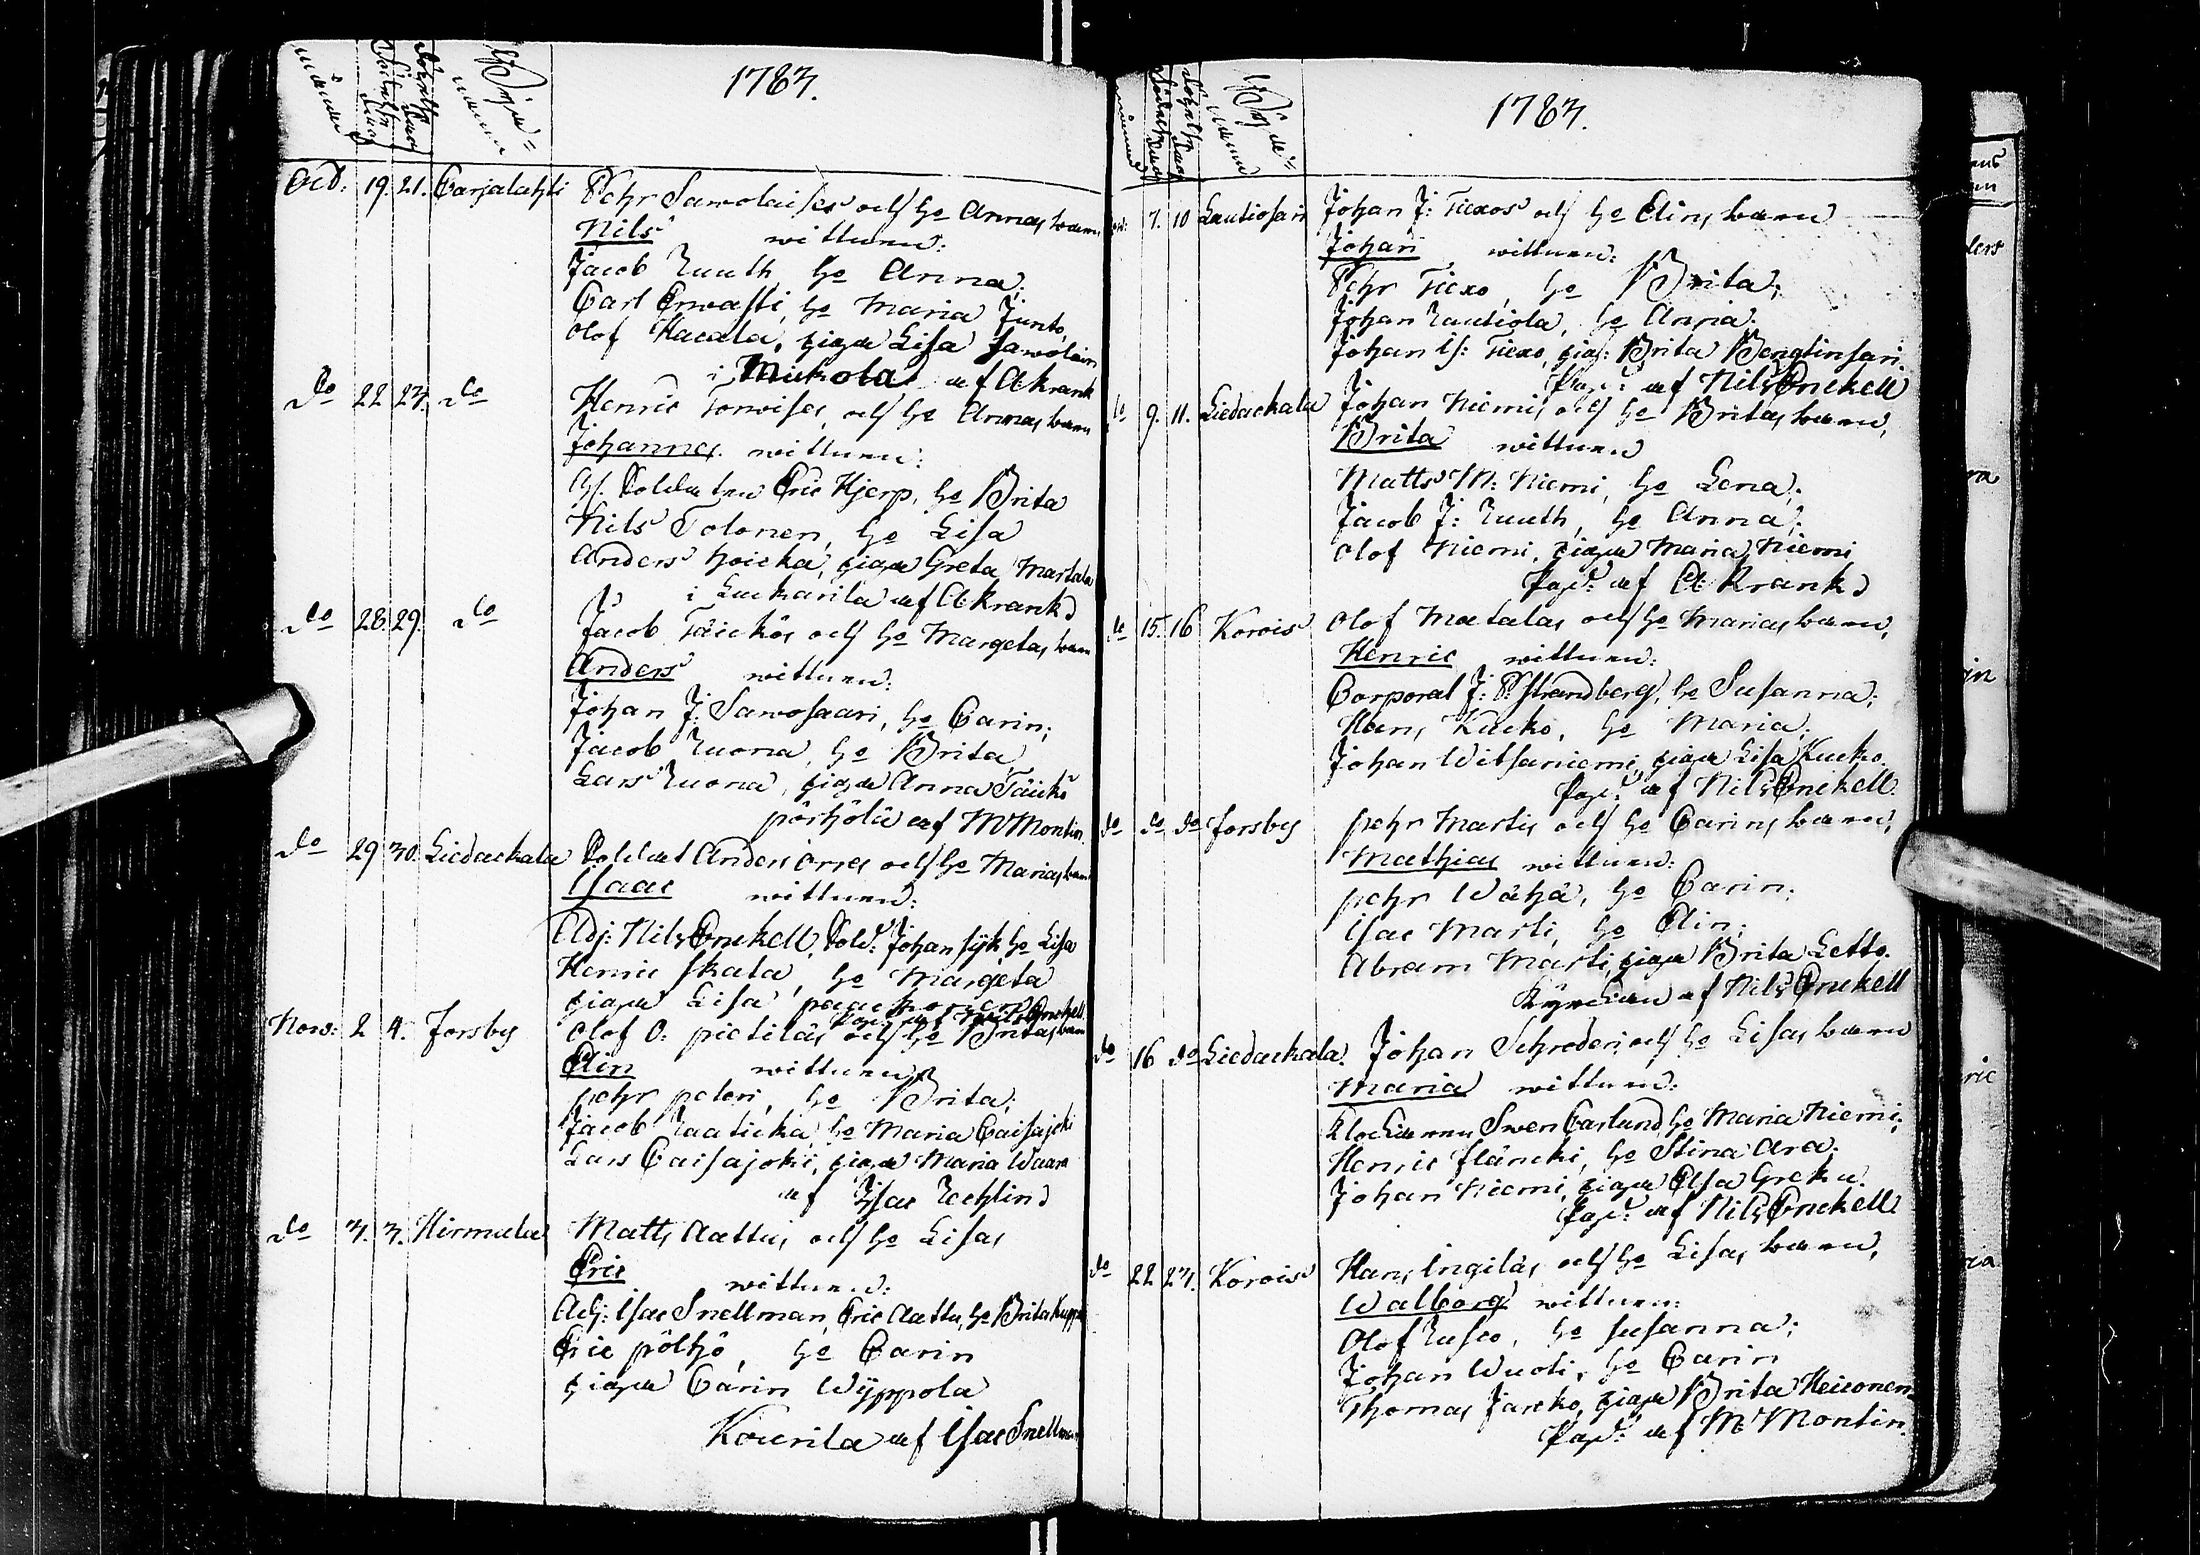 månader
Födelse dag
Döpelse dag
Byars namn
1783.
Oct: 19. 21. Carjalahti Pehr Sawolaises och hu Annas barn
Nils wittnen:
Jacob Ruuth, hu Anna;
Carl Erwasti, hu Maria Junto,
Olof Hacala, piga Lisa Sawolain
i Mickola af A Krank
do 22 23. do Henric Torwises och hu Annas barn
Johannes. wittnen:
Soldaten Eric Hjerp, hu Brita
Nils Tolonen, hu Lisa
Anders hoicka, piga Greta Martala
i Luckarila af A Krank
do 28 29. do Jacob Täickös och hu Margetas barn
Anders wittnen:
Johan J: Sawosaari, hu Carin;
Jacob Ruona, hu Brita
Lars Ruona, piga Anna Täickö
pörhölä af M Montin
do 29 30. Liedackala Soldat Anders Orres och hu Marias barn
Isaac wittnen:
Adj: Nils Enckell, Sold: Johan Fÿk hu Lisa
Henric Skata, hu Margeta
piga Lisa paackonen
af Nils Enckell
Now: 2 4. Forsby Olof O: pietiläs och hu Britas barn
Elin wittnen
pehr peteri, hu Brita;
Jacob Raaticka, hu Maria Caisajoki
Lars Caisajoki, piga Maria Waara
af Isac Zechlin
do 3. 3. Hirmula Matts Aattus och hu Lisas
Eric wittnen:
Adj: Isac Snellman, Eric Aattu, hu Brita Kuppa
Eric pölhö, hu Carin
piga Carin Wÿppola
Kourila af Isac Snellman
månad
Födelse dag
Döpelse dag
Byars namn
1783.
7. 10 Lautiosari Johan J: Ticxos och hu Elins barn
Johan wittnen:
Pehr Ticxo, hu Brita;
Johan Rautiola, hu Anna:
Johan Is: Ticxo, pig: Brita Bengtinsari.
Past: af Nils Enckell
do 9. 11. Liedackala Johan Niemis och hu Britas barn,
Brita wittnen
Matts M: Niemi, hu Lena;
Jacob J: Ruuth, hu Anna;
Olof Niemi, piga Maria Niemi
Past: af A Krank
do 15. 16 Korois Olof Matalas och hu Marias barn,
Henric wittnen:
Corporal J: P: Strandberg, hu Susanna;
Hans Kucko, hu Maria;
Johan Witsaniemi, piga Lisa Kucko.
Past: af Nils Enckell
do do do Forsby pehr Martis och hu Carins barn,
Mathias wittnen:
pehr Wähä, hu Carin;
Isac Marti, hu Elin;
Abram Marti, piga Brita Letto.
Kyrckan af Nils Enckell
do 16 do Liedackala. Johan Schroders och hu Lisas barn
Maria wittnen:
Klockaren Swen Carlund, hu Maria Niemi;
Henric Fläncki, hu Stina Ara.
Johan Niemi, piga Elsa Greku.
Past: af Nils Enckell
do 22 23. Korois Hans Ingiläs och hu Lisas barn,
Walborg wittnen:
Olof Rusco, hu Susanna;
Johan Wuoti, hu Carin
Thomas Jarcko, piga Brita Heiconen.
Past: af M Montin.